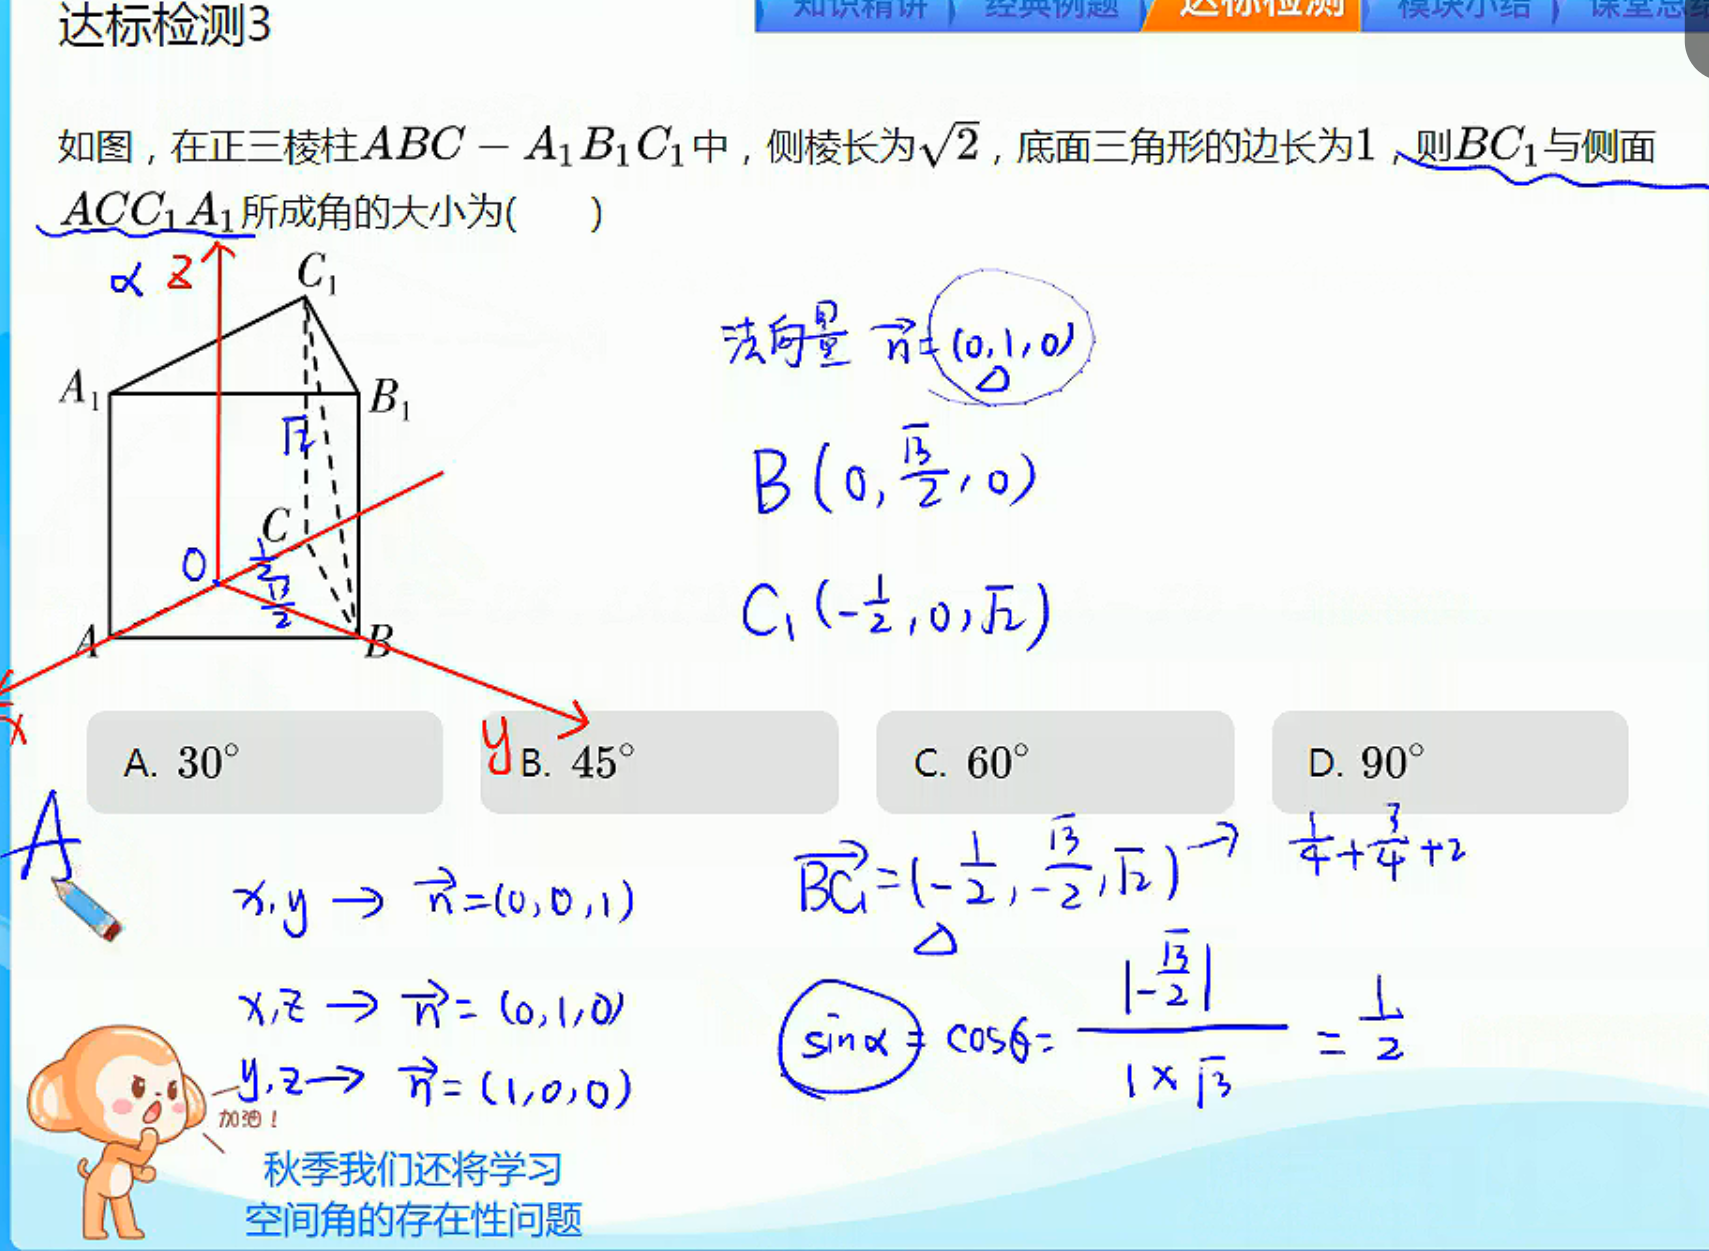 达标检测3
知识精讲 经典例题 达标检测 模块小结 课堂总结
如图，在正三棱柱ABC − A₁B₁C₁中，侧棱长为√2，底面三角形的边长为1，则BC₁与侧面
ACC₁A₁所成角的大小为(      )
α z C₁
A₁ B₁
√2
C
O 1/2
√3/2
A B
x y
法向量 n⃗=(0,1,0)
B(0, √3/2, 0)
C₁(-1/2, 0, √2)
A. 30°
B. 45°
C. 60°
D. 90°
A
x,y → n⃗=(0,0,1)
x,z → n⃗=(0,1,0)
y,z → n⃗=(1,0,0)
BC₁⃗=(-1/2, -√3/2, √2) → 1/4+3/4+2
sinα = cosθ = |-√3/2| / 1×√3 = 1/2
加油！
秋季我们还将学习
空间角的存在性问题